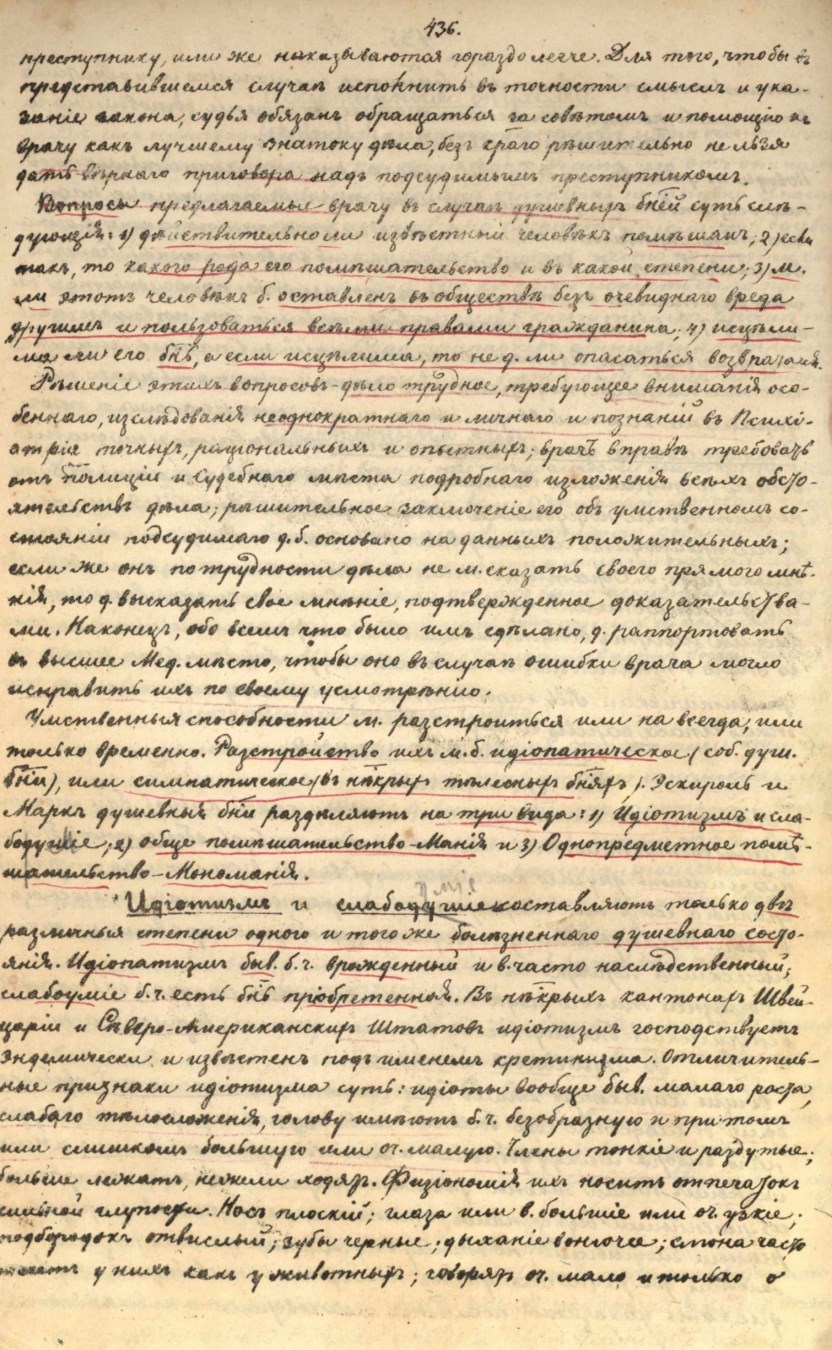 436.
преступнику, или же наказываются гораздо легче. Для того, чтобы въ
представившемся случаѣ исполнить въ точности смыслъ и ука-
заніе закона, судья обязанъ обращаться за совѣтомъ и помощію къ
врачу какъ лучшему знатоку дѣла, безъ чего рѣшительно нельзя
дать вѣрнаго приговора надъ подсудимымъ преступникомъ.
Вопросы предлагаемые врачу въ случаѣ душевныхъ бней суть слѣ-
дующія: 1) дѣйствительно ли извѣстный человѣкъ помѣшанъ, 2) если
такъ, то какого рода его помѣшательство и въ какой степени; 3) м.
ли этотъ человѣкъ б. оставленъ въ обществѣ безъ очевиднаго вреда
другимъ и пользоваться всѣми правами гражданина; 4) исцѣли-
ма ли его бнь, а если исцѣлима, то не д. ли опасаться возврата ея.
Рѣшеніе этихъ вопросовъ - дѣло трудное, требующее вниманія осо-
беннаго, изслѣдованія неоднократнаго и личнаго и познаній въ Психі-
атріи точныхъ, раціональныхъ и опытныхъ; врачъ вправѣ требовать
отъ полиціи и судебнаго мѣста подробнаго изложенія всѣхъ обсто-
ятельствъ дѣла; рѣшительное заключеніе его объ умственномъ со-
стояніи подсудимаго д. б. основано на данныхъ положительныхъ;
если же онъ по трудности дѣла не м. сказать своего прямого мнѣ-
нія, то д. высказать свое мнѣніе, подтвержденное доказательства-
ми. Наконецъ, обо всемъ что было имъ сдѣлано, д. раппортовать
въ высшее Мед. мѣсто, чтобы оно въ случаѣ ошибки врача могло
исправить ихъ по своему усмотрѣнію.
Умственныя способности м. разстроиться или на всегда, или
только временно. Разстройство ихъ м. б. идіопатическое (соб. душ.
бни), или симпатическое (въ нѣкрыхъ тѣлесныхъ бняхъ). Эскироль и
Маркъ душевныя бни раздѣляютъ на три вида: 1) Идіотизмъ и сла-
бодушіе; 2) обще помѣшательство - Манія и 3) Однопредметное помѣ-
шательство - Мономанія.
Идіотизмъ и слабодушіе составляютъ только двѣ
различныя степени одного и того же болѣзненнаго душевнаго состо-
янія. Идіопатизмъ быв. б. ч. врожденный и в. часто наслѣдственный;
слабоуміе б. ч. есть бнь пріобретенная. Въ нѣкрыхъ кантонахъ Швей-
царіи и Сѣверо-Американскихъ Штатовъ идіотизмъ господствуетъ
эндемически и извѣстенъ подъ именемъ кретинизма. Отличитель-
ные признаки идіотизма суть: идіоты вообще быв. малаго роста,
слабаго тѣлосложенія, голову имѣютъ б. ч. безобразную и притомъ
или слишкомъ большую или оч. малую. Члены тонкіе и раздутые;
больше лежатъ, нежели ходятъ. Физіономія ихъ носитъ отпечатокъ
сильной глупости. Носъ плоскій; глаза или в. большіе или оч. узкіе;
подбородокъ отвислый; зубы черные; дыханіе вонючее; слюна часто
течетъ у нихъ какъ у животныхъ; говорятъ оч. мало и только о